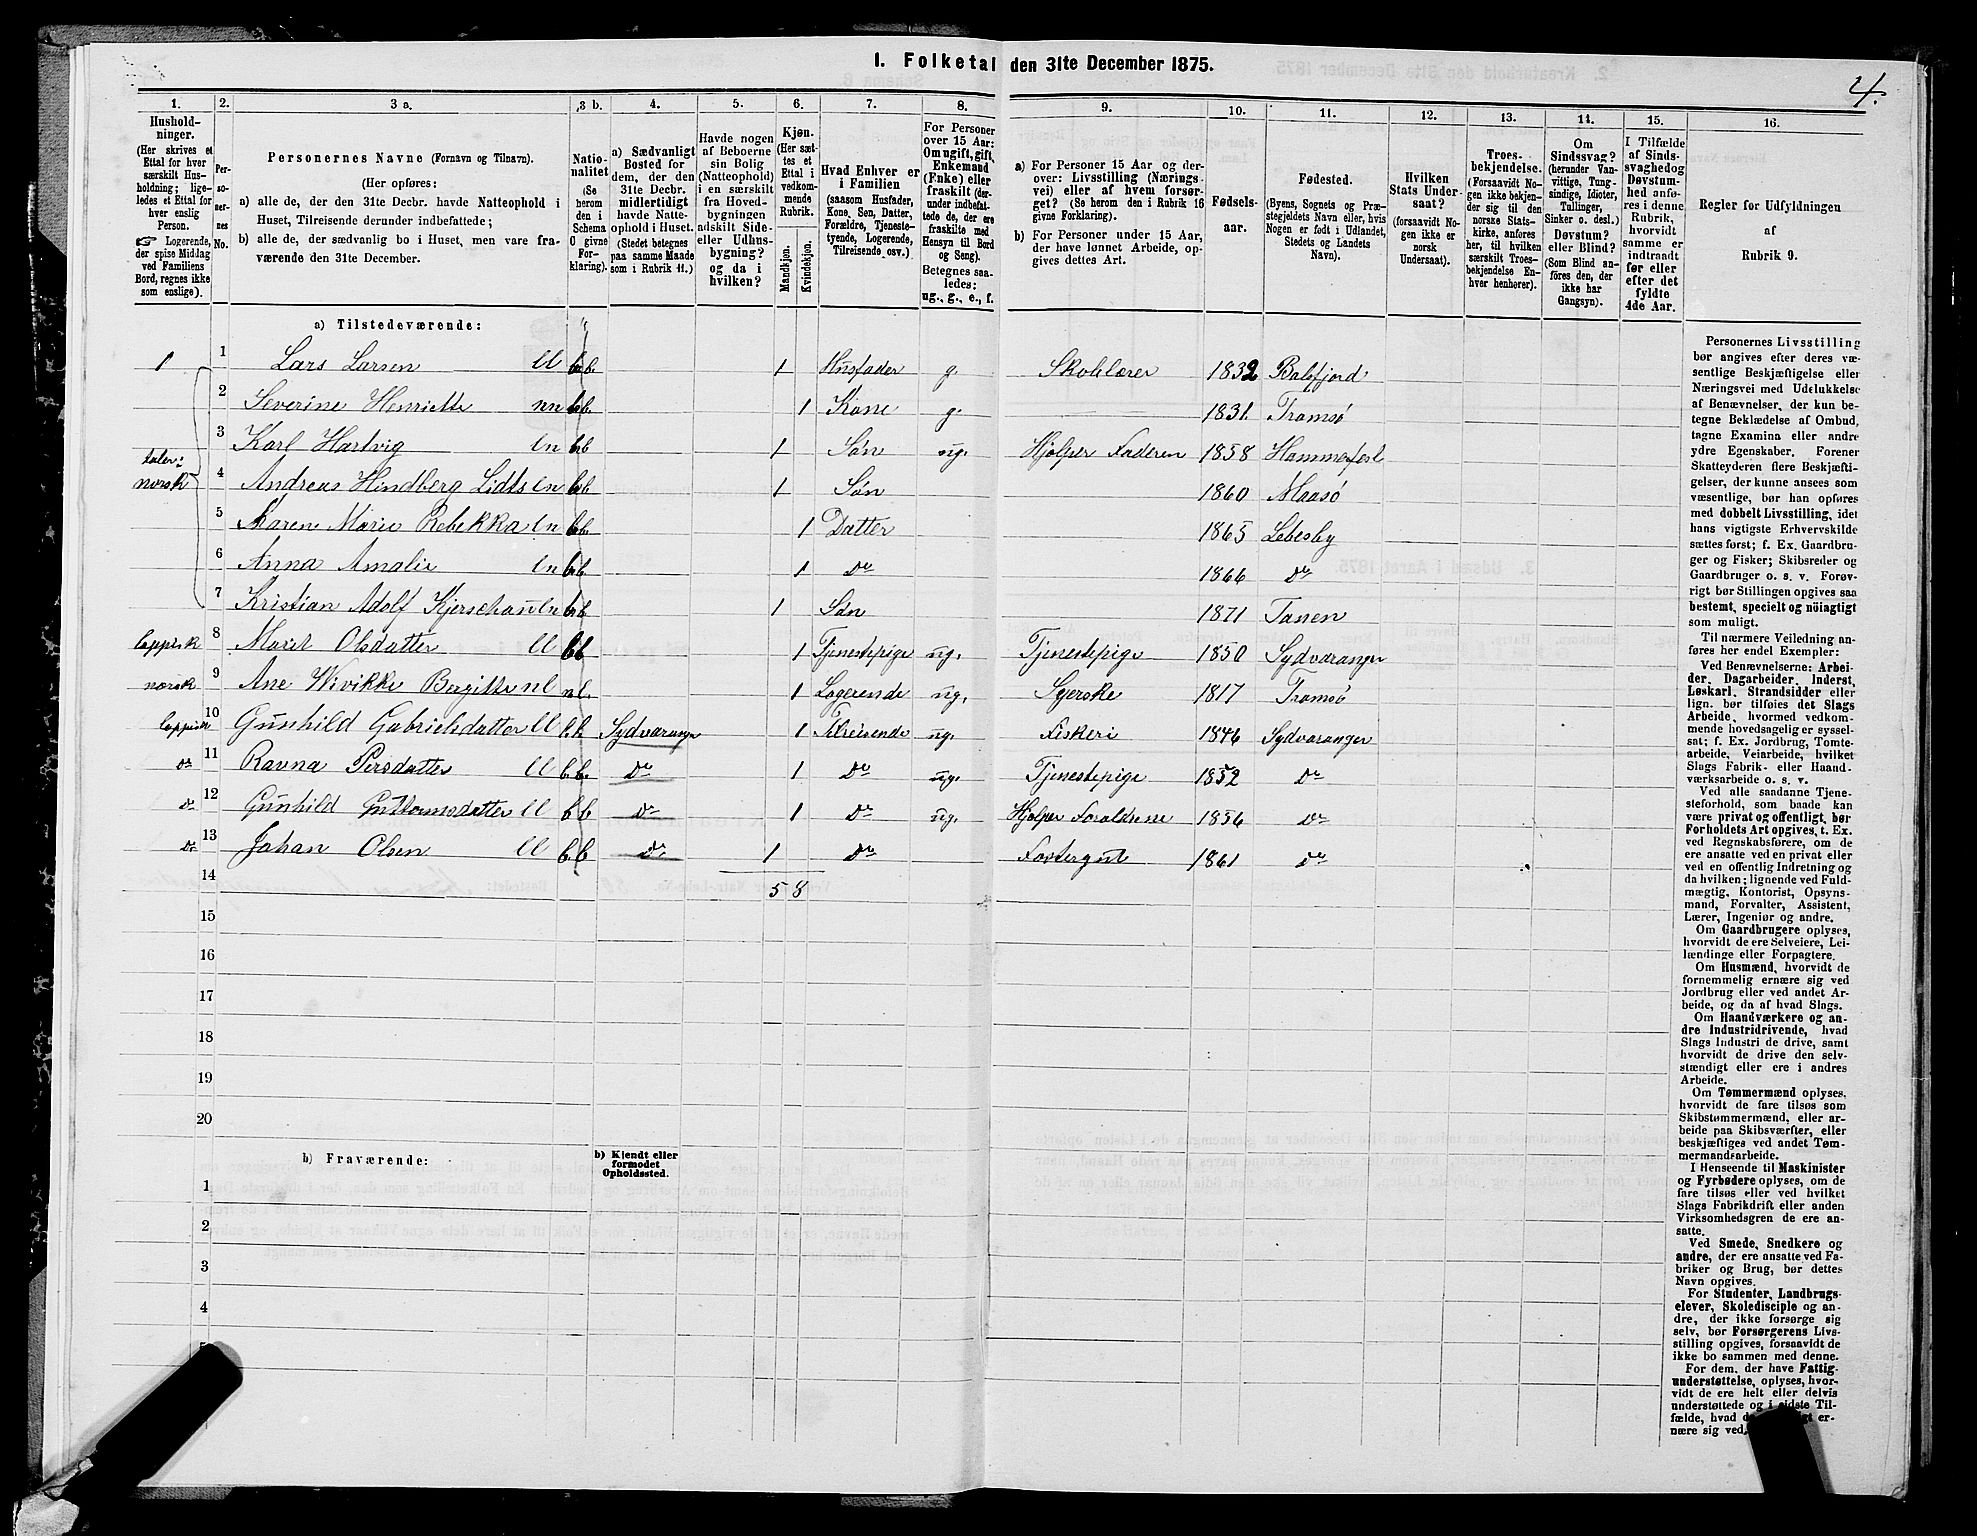 I. Folketal den 31te December 1875.
4.
1.
2.
3 a.
3 b.
4.
5.
6.
7.
8.
9.
10.
11.
12.
13.
14.
15.
16.
Hushold-
ninger.
(Her skrives et
Ettal for hver
særskilt Hus-
holdning; lige-
ledes et Ettal for
hver enslig
Person.
☞ Logerende,
der spise Middag
ved Familiens
Bord, regnes ikke
som enslige).
Per-
so-
ner-
nes
No.
Personernes Navne (Fornavn og Tilnavn).
(Her opføres:
a) alle de, der den 31te Decbr. havde Natteophold i
Huset, Tilreisende derunder indbefattede;
b) alle de, der sædvanlig bo i Huset, men vare fra-
værende den 31te December.
Natio-
nalitet
(Se
herom
den i
Schema
O givne
For-
klaring).
a) Sædvanligt
Bosted for
dem, der den
31te Decbr.
midlertidigt
havde Natte-
ophold i Huset.
(Stedet betegnes
paa samme Maade
som i Rubrik 11.)
Havde nogen
af Beboerne
sin Bolig
(Natteophold)
i en særskilt
fra Hoved-
bygningen
adskilt Side-
eller Udhus-
bygning?
og da i
hvilken?
Kjøn.
(Her sæt-
tes et
Ettal i
vedkom-
mende
Rubrik.
Mandkjøn.
Kvindekjøn.
Hvad Enhver er
i Familien
(saasom Husfader,
Kone, Søn, Datter,
Forældre, Tjeneste-
tyende, Logerende,
Tilreisende osv.)
For Personer
over 15 Aar:
Om ugift, gift,
Enkemand
(Enke) eller
fraskilt (der-
under indbefat-
tede de, der ere
fraskilte med
Hensyn til Bord
og Seng).
Betegnes saa-
ledes:
ug., g., e., f.
a) For Personer 15 Aar og der-
over: Livsstilling (Nærings-
vei) eller af hvem forsør-
get? (Se herom den i Rubrik 16
givne Forklaring).
b) For Personer under 15 Aar,
der have lønnet Arbeide, op-
gives dettes Art.
Fødsels-
aar.
Fødested.
(Byens, Sognets og Præ-
stegjeldets Navn eller, hvis
Nogen er født i Udlandet,
Stedets og Landets
Navn).
Hvilken
Stats Under-
saat?
(forsaavidt No-
gen ikke er
norsk
Undersaat).
Troes-
bekjendelse.
(Forsaavidt No-
gen ikke bekjen-
der sig til den
norske Stats-
kirke, anføres
her, til hvilken
særskilt Troes-
bekjendelse En-
hver henhører).
Om
Sindssvag?
(herunder Van-
vittige, Tung-
sindige, Idioter,
Tullinger,
Sinker o. desl.)
Døvstum?
eller Blind?
(Som Blind an-
føres den, der
ikke har
Gangsyn).
I Tilfælde
af Sinds-
svaghed og
Døvstum-
hed anfø-
res i denne
Rubrik,
hvorvidt
samme er
indtraadt
før eller
efter det
fyldte
4de Aar.
Regler for Udfyldningen
af
Rubrik 9.
a) Tilstedeværende:
1 1 Lars Larsen ll b.b. 1 Husfader g. Skolelærer 1832 Balsfjord
2 Severine Henriette nn b.b. 1 Kone g. 1831. Tromsø
3 Karl Hartvig ln b.b 1 Søn ug. Hjælper Faderen 1858 Hammerfest
taler:
norsk
4 Andreas Hindberg Lidts ln b.b 1 Søn 1860 Maasø
5 Maren Marie Rebekka ln b.b. 1 Datter 1865 Lebesby
6 Anna Amalie ln b.b. 1 do 1866 do
7 Kristian Adolf Kjerschau ln b.b 1 Søn 1871 Tanen
lappisk 8 Marit Olsdatter ll b.b 1 Tjenestepige ug. Tjenestepige 1850 Sydvaranger
norsk 9 Ane Wivikke Bergitte nl n.l. 1 Logerende ug. Syerske 1817 Tromsø
lappisk 10 Gunhild Gabrielsdatter ll b.b. Sydvaranger 1 Tilreisende ug. Fiskeri 1846 Sydvaranger
do 11 Ravna Persdatter ll b.b. do 1 do ug. Tjenestepige 1852 do
do 12 Gunhild Guttormsdatter ll b.b do 1 do ug. Hjelper Forældrene 1856 do
do 13 Johan Olsen ll b.b do 1 do Fostergut 1861 do
14 5 8
15
16
17
18
19
20
b) Fraværende:
b) Kjendt eller
formodet
Opholdssted.
1
2
3
4
Personernes Livsstilling
bør angives efter deres væ-
sentlige Beskjæftigelse eller
Næringsvei med Udelukkelse
af Benævnelser, der kun be-
tegne Beklædelse af Ombud,
tagne Examina eller andre
ydre Egenskaber. Forener
Skatteyderen flere Beskjæfti-
gelser, der kunne ansees som
væsentlige, bør han opføres
med dobbelt Livsstilling, idet
hans vigtigste Erhvervskilde
sættes først; f. Ex. Gaardbru-
ger og Fisker; Skibsreder og
Gaardbruger o. s. v. Forøv-
rigt bør Stillingen opgives saa
bestemt, specielt og nöiagtigt
som muligt.
Til nærmere Veiledning an-
føres her endel Exempler:
Ved Benævnelserne: Arbei-
der, Dagarbeider, Inderst,
Løskarl, Strandsidder eller
lign. bør tilføies det Slags
Arbeide, hvormed vedkom-
mende hovedsagelig er syssel-
sat; f. Ex. Jordbrug, Tomte-
arbeide, Veiarbeide, hvilket
Slags Fabrik- eller Haand-
værksarbeide o. s. v.
Ved alle saadanne Tjene-
steforhold, som baade kan
være privat og offentligt, bør
Forholdets Art opgives, t. Ex.
ved Regnskabsførere, om de
ere ansatte ved en privat eller
ved en offentlig Indretning og
da hvilken; lignende ved Fuld-
mægtig, Kontorist, Opsyns-
mand, Forvalter, Assistent,
Lærer, Ingeniør og andre.
Om Gaardbrugere oplyses,
hvorvidt de ere Selveiere, Lei-
lændinge eller Forpagtere.
Om Husmænd, hvorvidt de
fornemmelig ernære sig ved
Jordbrug eller ved andet Ar-
beide, og da af hvad Slags.
Om Haandværkere og an-
dre Industridrivende, hvad
Slags Industri de drive, samt
hvorvidt de drive den selv-
stændigt eller ere i andres
Arbeide.
Om Tømmermænd oplyses,
hvorvidt de fare tilsøs som
Skibstømmermænd, eller ar-
beide paa Skibsværfter, eller
beskjæftiges ved andet Tøm-
mermandsarbeide.
I Henseende til Maskinister
og Fyrbødere oplyses, om de
fare tilsøs eller ved hvilket
Slags Fabrikdrift eller anden
Virksomhedsgren de ere an-
satte.
Ved Smede, Snedkere og
andre, der ere ansatte ved Fa-
briker og Brug, bør dettes
Navn opgives.
For Studenter, Landbrugs-
elever, Skoledisciple og an-
dre, der ikke forsørge sig
selv, bør Forsørgerens Livs-
stilling opgives, forsaavidt de
ikke bo sammen med denne.
For dem, der have Fattig-
understøttelse, oplyses, hvor-
vidt de ere helt eller delvis
understøttede og i sidste Til-
fælde, hvad
er-
nære sig ved.